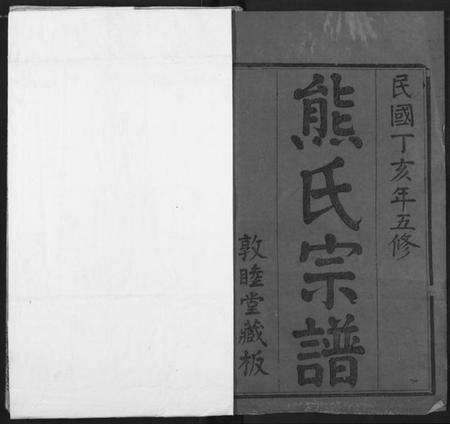 民國丁亥年五修
熊氏宗譜
敦睦堂藏板